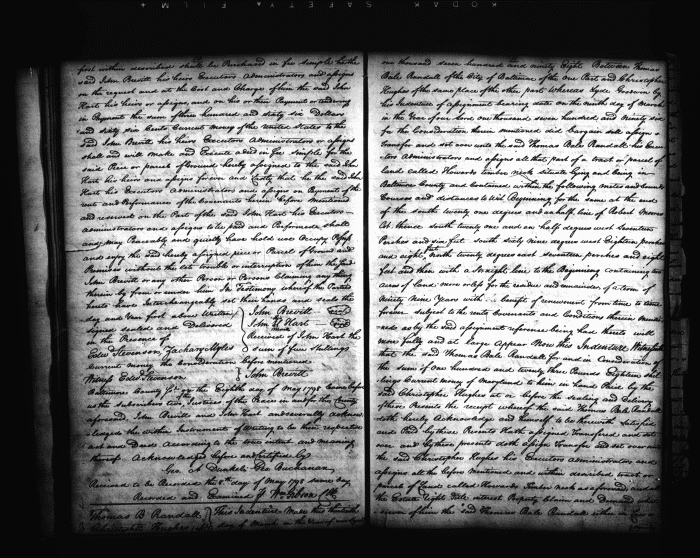 first within described shall be Purchased in fee simple he the
said John Brevitt his heirs Executors Administrators and assigns
on the request and at the Cost and Charges of him the said John
Hart his heirs or assigns, and on his or their Payment or tendering
in Payment the sum of three hundred and sixty six Dollars
and sixty six Cents Current money of the United States to the
said John Brevitt his heirs Executors Administrators or assigns
shall and will make and Execute a deed in fee simple for the
said Piece or parcel of Ground hereby assigned to the said John
Hart his heirs and assigns forever and Lastly that he the said John
Hart his Executors Administrators and assigns on Payment of the
rents and Performance of the Covenants herein before Mentioned
and reserved on the Part of the said John Hart his Executors
Administrators and assigns to be paid and Performed shall
and may Peaceably and quietly have hold use Occupy Possess
and enjoy the said hereby assigned piece or Parcel of Ground and
Premises without the let trouble or interruption of him the said
John Brevitt or any other Person or Persons Claiming any thing
therein by from or under him In Testimony whereof the Parties
hereto have Interchangeably set their hands and seals the
day and Year first above Written John Brevitt
Signed sealed and Delivered John H Hart
in the Presence of Received of John Hart the
Edw Stevenson, Zachary Myles sum of five shillings
Current money the Consideration before mentioned
Witness Edw Stevenson John Brevitt
Baltimore County Sct. On the Eighth day of May 1798 Came before
us the subscribers two Justices of the Peace in and for the County
aforesaid, John Brevitt and John Hart and severally acknow
ledged the within Instrument of Writing to be their respective
act and Deed According to the true intent and meaning
thereof. Acknowledged before and Certified by
Geo. G Dunkel Geo Buchanan
Received to be Recorded the 8th day of May 1798 same day
Recorded and Examined Wm Gibson Clk
Thomas B. Randall This Indenture Made this thirtieth
Christopher Hughes day of March in the Year of our Lord
one thousand seven hundred and ninety Eight Between Thomas
Bale Randall of the City of Baltimore of the One Part and Christopher
Hughes of the same place of the other part Whereas Hyde by
his Indenture of assignment bearing date on the ninth day of March
in the Year of our Lord one thousand seven hundred and Ninety six
for the Consideration therein mentioned did bargain sell assign
transfer and set over unto the said Thomas Bale Randall his Exe
cutors Administrators and assigns all that part of a tract or parcel of
land called Howards timber neck situate lying and being in
Baltimore County and Contained within the following metes and bounds
Courses and distances to Wit Beginning for the same at the end
of the south twenty one degrees and a half line of Robert Moores
thence south twenty one and an half degrees west seventeen
Perches and six feet south sixty nine degrees west Eighteen perches
and eight north twenty degrees east seventeen perches and eight
feet and then with a straight line to the Beginning containing two
acres of land more or less for the residue and remainder of a term of
Ninety Nine Years with benefit of renewment from time to time
forever subject to the rents Covenants and Conditions therein mentio
ned as by the said assignment reference being had thereto will
more fully and at large Appear Now this Indenture Witnesseth
that the said Thomas Bale Randall for and in Consideration of
the sum of one hundred and twenty three Pounds Eighteen shil
lings Current money of Maryland to him in hand Paid by the
said Christopher Hughes at or before the sealing and Delivery
of these Presents the receipt whereof the said Thomas Bale Randall
doth hereby Acknowledge and himself to be therewith satisfied
and Paid by these Presents Hath assigned transferred and set
over and by these presents doth assign transfer and set over unto
the said Christopher Hughes his Executors Administrators and
assigns all the before Mentioned and within described part or
parcel of Land called Howards timber neck as aforesaid and all
the Estate right title interest Property Claim and Demand what
soever of him the said Thomas Bale Randall either in Law